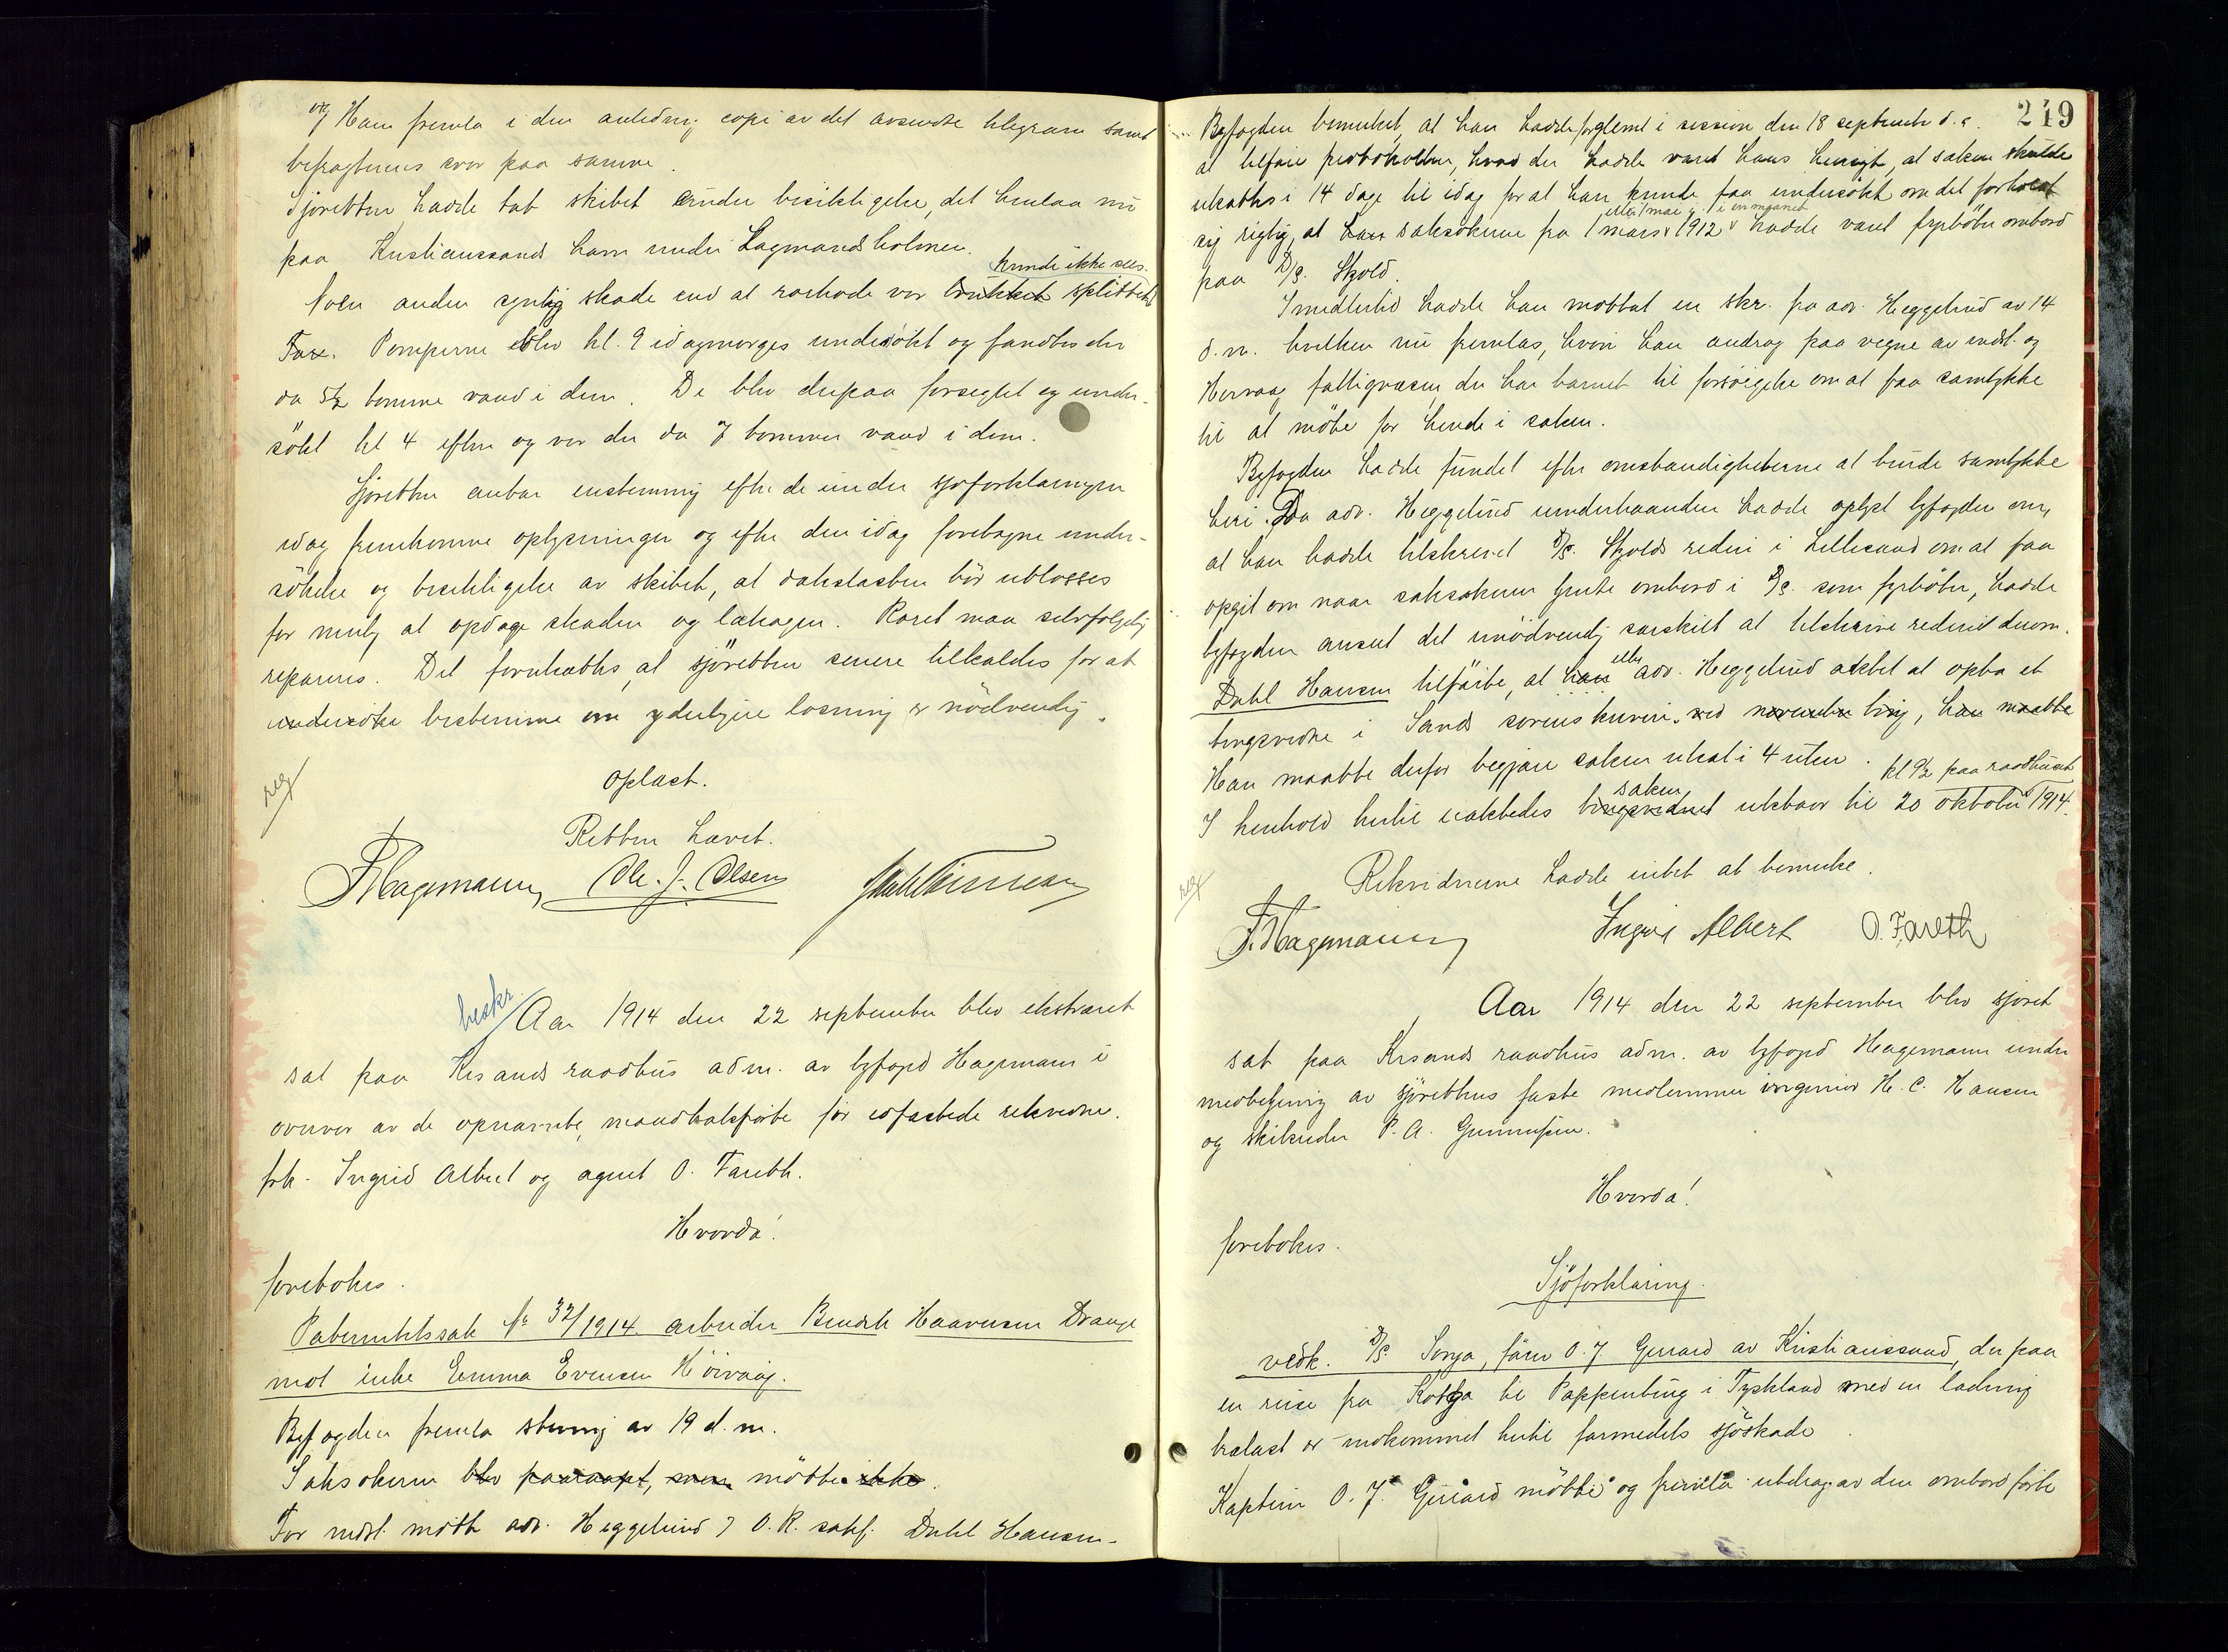 og Han fremla i den anledning copi av det avsendte telegram samt
befragterens svar paa samme.
Sjøretten hadde tat skibet under besiktigelse, det henlaa nu
paa Kristianssands havn under Lagmandsholmen.
kunde ikke sees.
Noen anden synlig skade end at rorhode var brukket splittet
Pumperne blev kl. 9 idagmorges undersökt og fandtes der
da 5½ tomme vand i dem. De blev derpaa forseglet og under-
sökt kl 4 efterm og var der da 7 tommer vand i dem.
Sjøretten antar enstemmig efter de under sjøforklaringen
idag fremkomne oplysninger og efter den idag foretagne under-
sökelse og besiktigelse av skibet, at dækslasten bör utlosses
for mulig at opdage skaden og lækagen. Roret maa selvfølgelig
repareres. Det forutsættes, at sjöretten senere tilkaldes for at
undersöke bestemme om yderligere losning er nödvendig.
Oplæst.
Retten hævet.
F. Hagemann Ole. J. Olsen
beskr.
Aar 1914 den 22 september blev ekstraret
sat paa Krsands raadhus adm. av byfogd Hagemann i
overvær av de opnævnte, mandtalsførte for edfæstede retsvidner.
frk. Ingrid Albert og agent O. Fareth.
Hvorda!
foretokes.
Paternitetssak № 32/1914 arbeider Bendik Haaversen Drange
mot inke Emma Evensen Höivaag.
Byfogden fremla stevning av 19 d.m.
Saksökeren blev paaraapt, men mötte ikke.
For indst. mötte adv. Heggelund v O.R. sakf. Dahl Hansen.
249
Byfogden bemerket, at han hadde forglemt i session den 18 september d.a.
at tilføie protokollen, hvad der hadde været hans hensigt, at saken skulde
utsættes i 14 dage til idag for at han kunde faa undersökt om det forholdt
eller 1 mai i en maaned
sig rigtig, at han saksökeren fra 1 mars 1912 hadde været fyrböter ombord
paa D/S. Skjold.
Imidlertid hadde han mottat en skr. fra adv. Heggelund av 14
d.m. hvilken nu fremlas, hvori han androg paa vegne av indst. og
Hervaag fattigvæsen, der har barnet til forsörgelse om at faa samtykke
til at möte for hende i saken.
Byfogden hadde fundet efter omstændigheterne at burde samtykke
heri. Da adv. Heggelund underhaanden hadde oplyst byfogden om,
at han hadde tilskrevet D/S. Skjolds rederi i Lillesand om at faa
opgit om naar saksökeren forte ombord i D/S. som fyrböter, hadde
byfogden anseet det unödvendig særskilt at tilskrive rederiet derom.
eller
Dahl Hansen tilförte, at han adv. Heggelund aktet at opta et
tingsvidne i Sands sorenskriveri ved november ting, han maatte
Han maatte derfor begjære saken utsat i 4 uker. kl 9½ paa raadhuset
saken
I henhold hertil utsattes tingsvidnet utsatt til 20 oktober 1914.
Rekvidnerne hadde intet at bemerke.
F. Hagemann Ingrid Albert O. Fareth
Aar 1914 den 22 september blev sjøret
sat paa Krsands raadhus adm. av byfogd Hagemann under
medbetjening av sjörettens faste medlemmer ingeniør H. C. Hansen
og skibsreder P. A. Gunnufsen.
Hvorda!
foretokes.
Sjöforklaring
vedk. D/S. Sonja, förer O. J. Gerrard av Kristianssand, der paa
en reise fra Kotka til Pappenburg i Tyskland med en ladning
trælast er indkommet hertil formedelst sjöskade.
Kaptein O. J. Gerrard mötte og fremla utdrag av den ombord förte